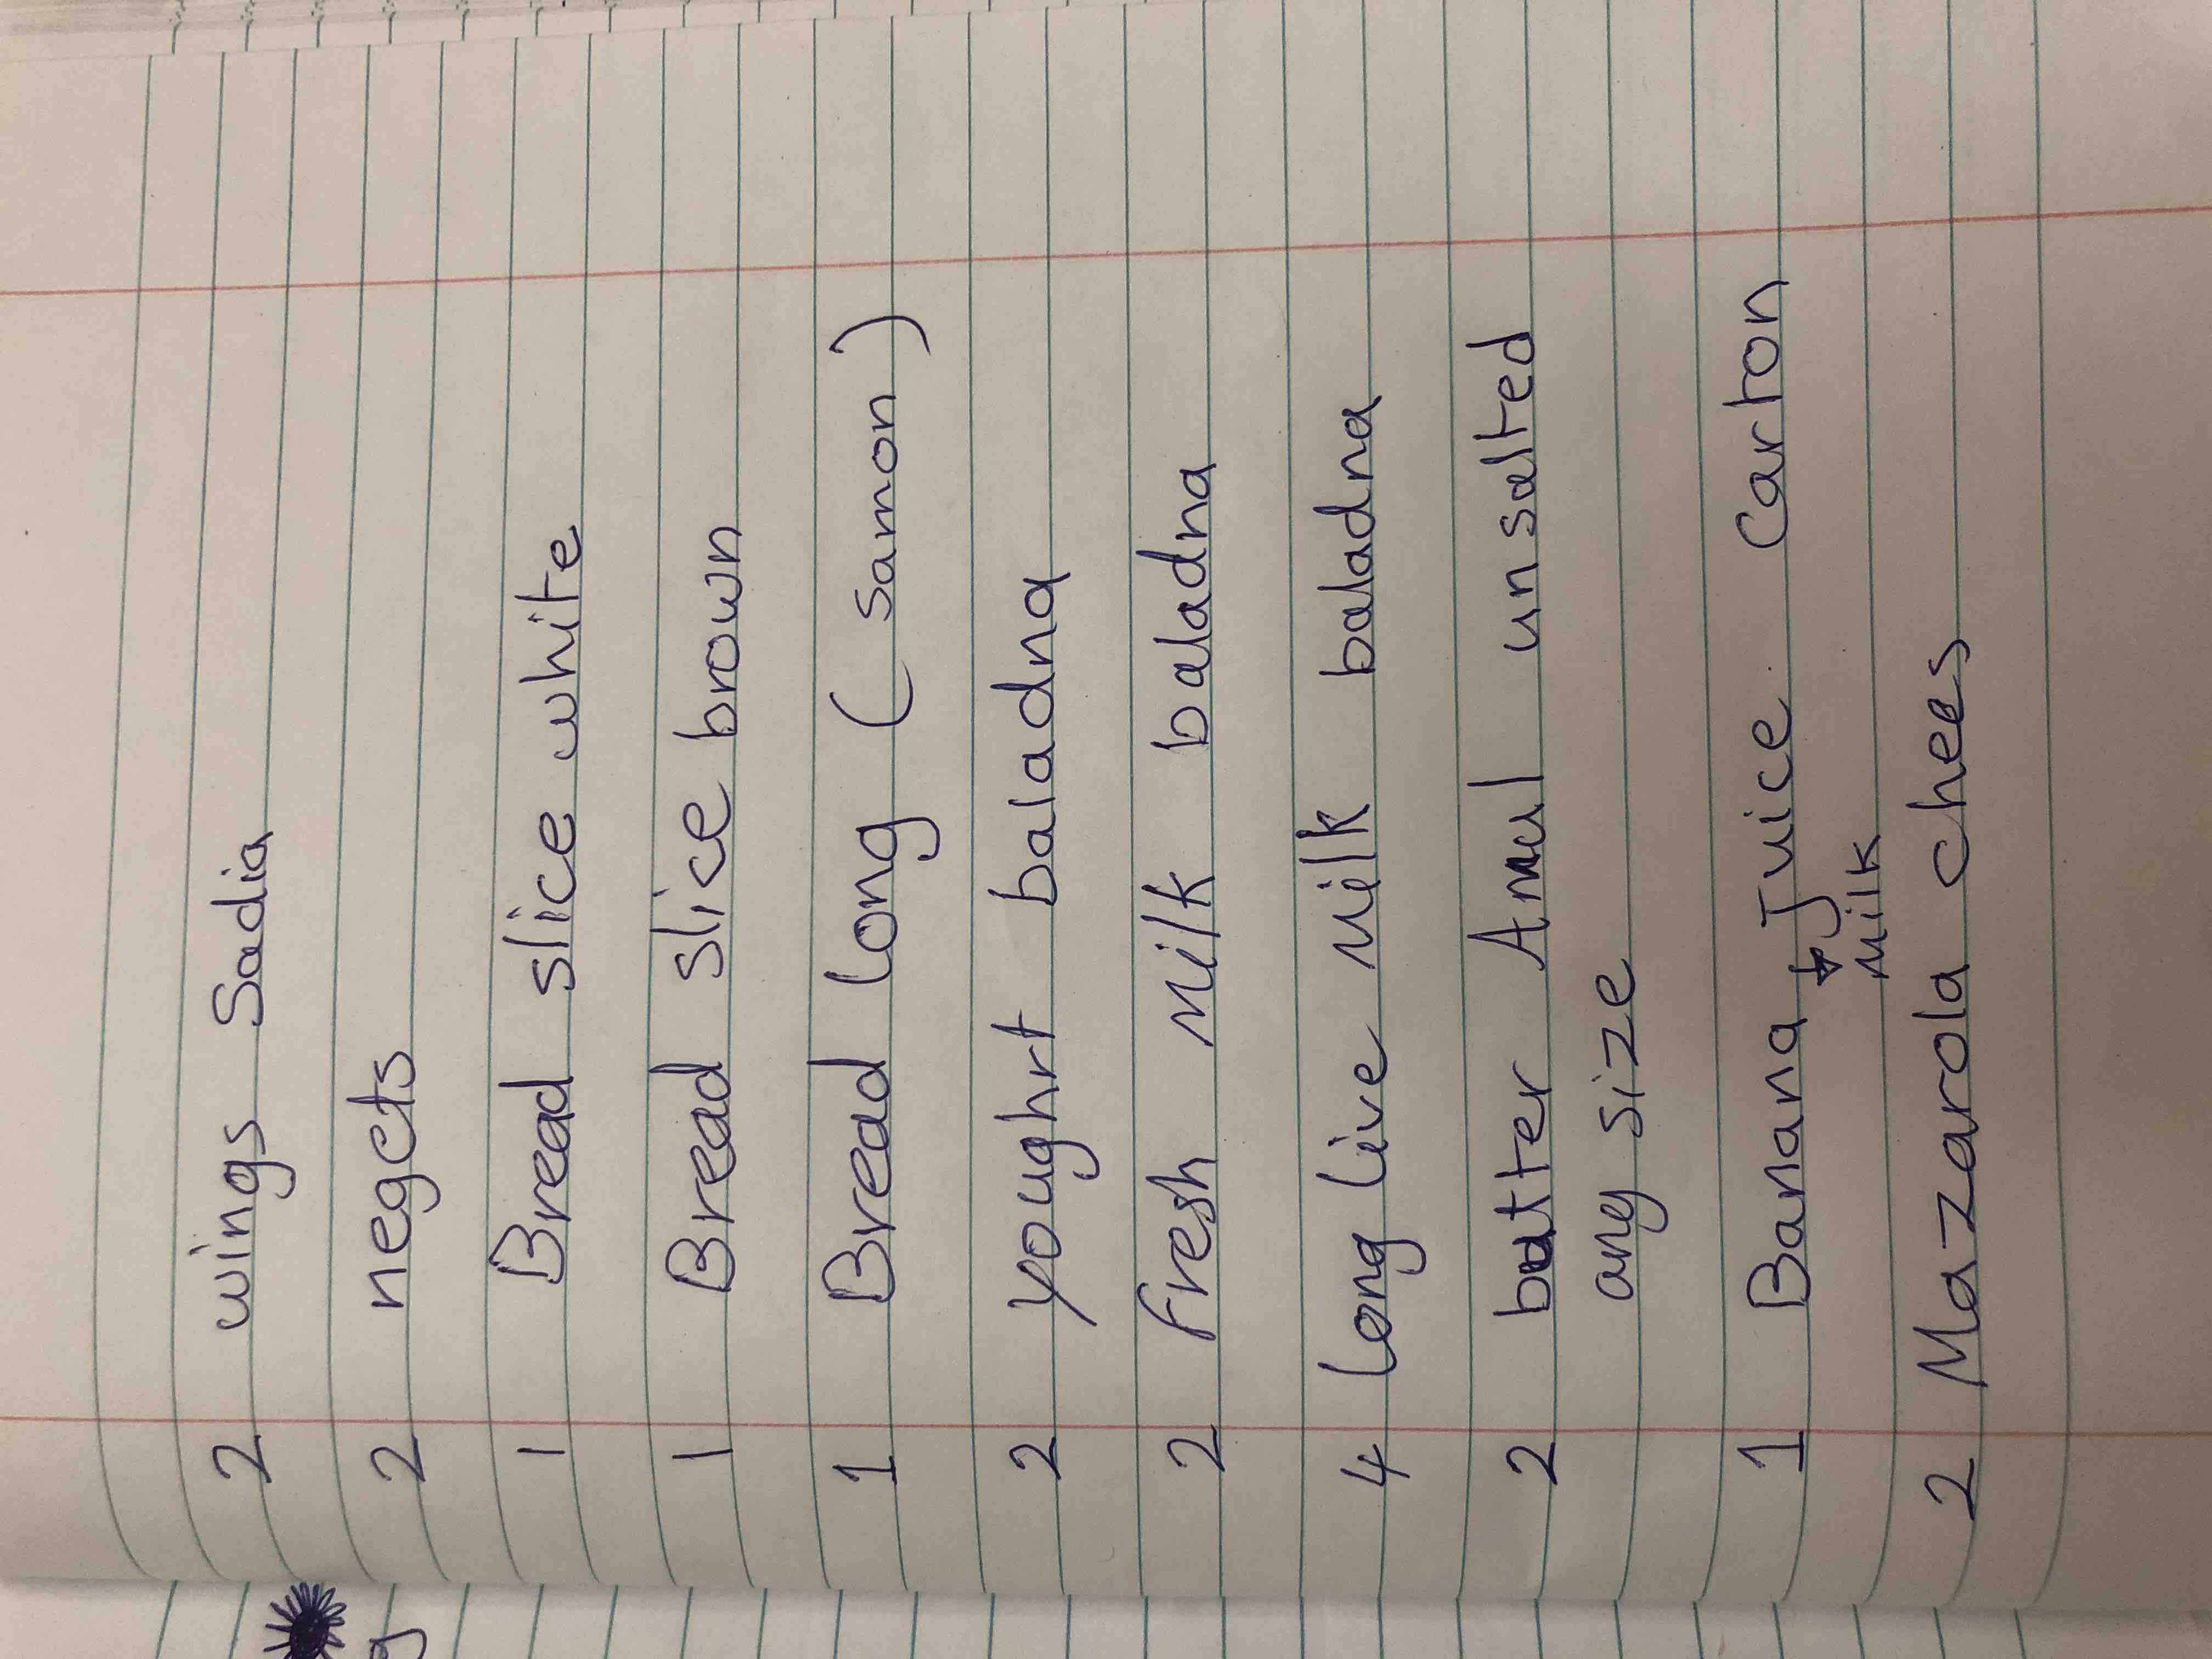 2 wings Sadia
2 negcts
1 Bread slice white
1 Bread slice brown
1 Bread long (samon)
2 youghrt baladna
2 Fresh Milk baladna
4 long Live Milk baladna
2 butter Amul unsalted
any size
1 Banana Juice Carton
Milk
2 Mazarola chees